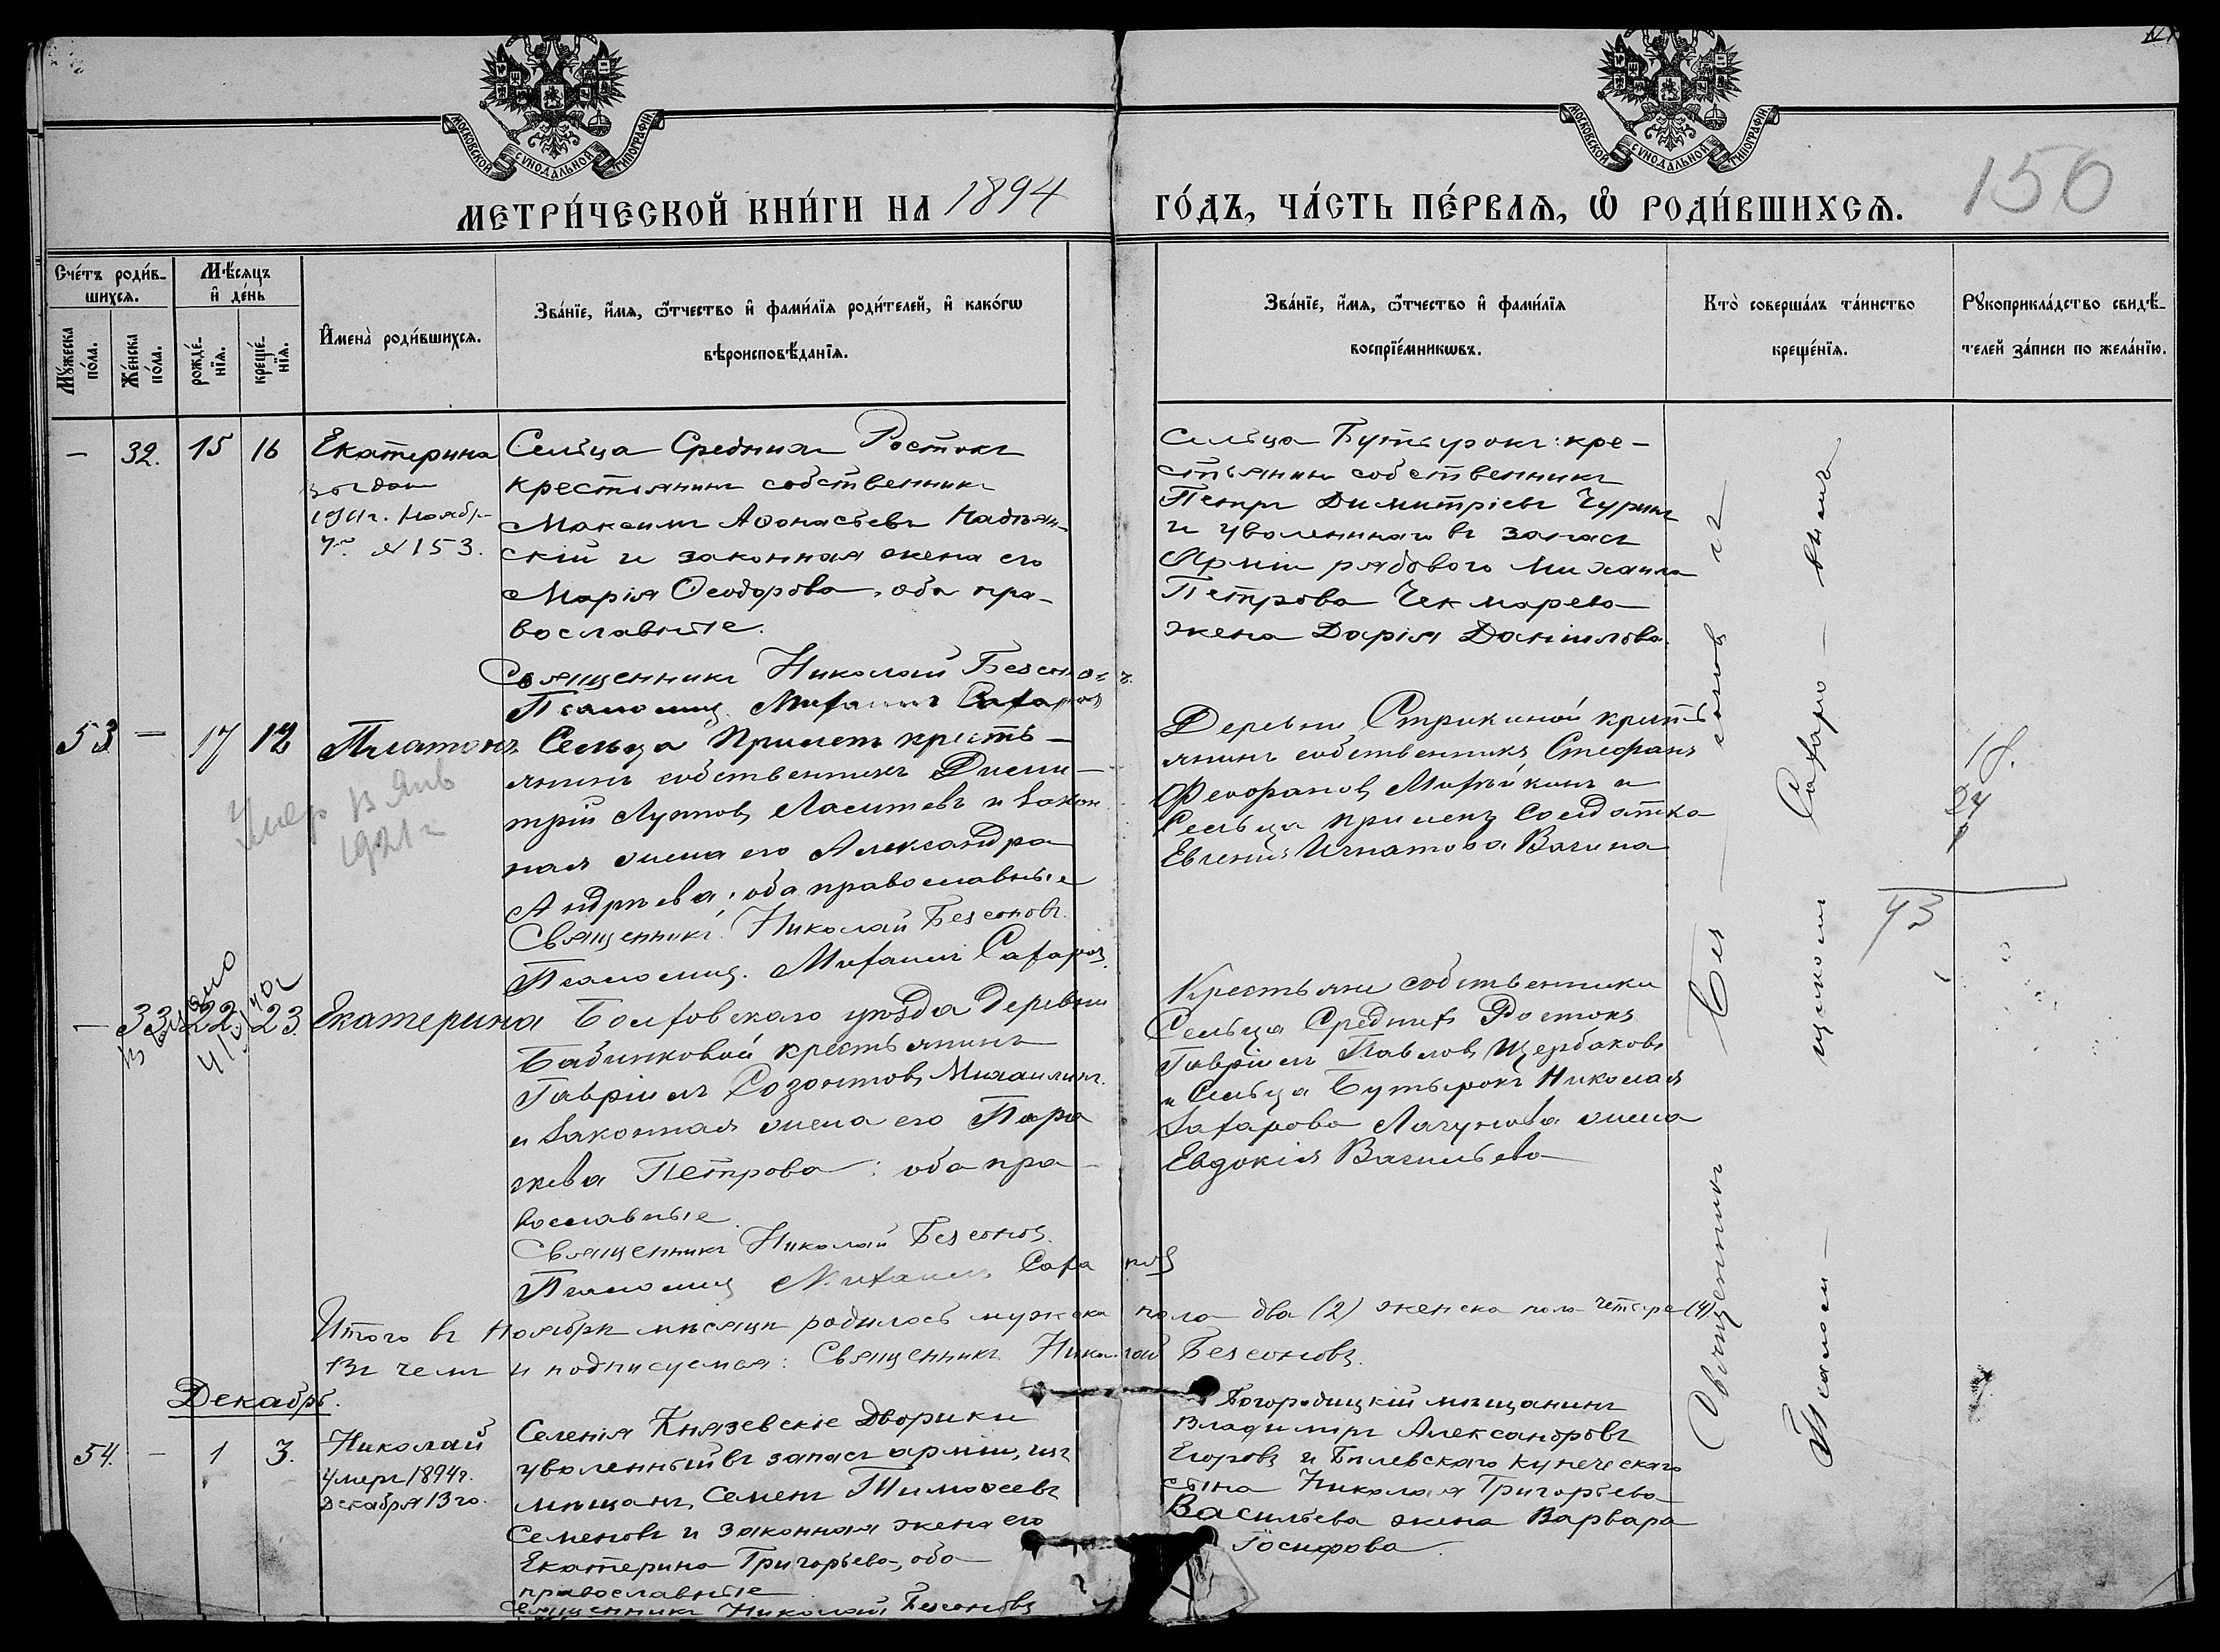 МОСКОВСКОЙ СѴНОДАЛЬНОЙ ТИПОГРАФІИ
МОСКОВСКОЙ СѴНОДАЛЬНОЙ ТИПОГРАФІИ
МЕТРИ́ЧЕСКОЙ КНИ́ГИ НА 1894
ГО́ДЪ, ЧА́СТЬ ПЕ́РВАѦ, Ѡ҆ РОДИ́ВШИХСѦ.
150
Сче́тъ роди́в-
шихсѧ.
Мꙋ́жеска по́ла.
Же́нска по́ла.
Мѣ́сѧцъ
и҆ де́нь
рожде́-
нїѧ.
креще́-
нїѧ.
И҆мена̀ роди́вшихсѧ.
Зва́нїе, и҆́мѧ, ѻ҆́тчество и҆ фами́лїѧ роди́телей, и҆ како́гѡ
вѣроисповѣ́данїѧ.
Зва́нїе, и҆́мѧ, ѻ҆́тчество и҆ фами́лїѧ
воспрїе́мникѡвъ.
Кто̀ соверша́лъ та́инство
креще́нїѧ.
Рꙋкоприкла́дство свидѣ́-
телей за́писи по жела́нїю.
— 32. 15 16 Екатерина
выдан
1911г. Ноябр.
№ 153.
Сельца Средних Ростокъ
крестьянинъ собственникъ
Максимъ Аѳонасьевъ
скій и законная жена его
Марія Ѳеодорова, оба пра-
вославные.
Священникъ Николай Безсоновъ.
Псаломщ. Михаилъ Сахаровъ
сельца Бутырокъ: кре-
стьянинъ собственникъ
Петръ Димитріевъ Чуринъ
и уволеннаго въ запасъ
Арміи рядового Михаила
Петрова Чекмарева
жена Дарія Даніилова.
53 — 17 18 Платонъ
Умер в Янв
1921 г
Сельца Прилепъ кресть-
янинъ собственникъ Дими-
трій Луповъ и закон
ная жена его Александра
Андреева, оба православные
Священникъ Николай Безсоновъ.
Псаломщ. Михаилъ Сахаровъ.
Деревни Стрикиной кресть
янинъ собственникъ Стефанъ
Феофановъ и
Сельца Прилепъ солдатка
Евгенія Игнатова Вагина
18.
24
43
— 33 22 23 Екатерина
Болховскаго уѣзда Деревни
Бабинковой крестьянинъ
Гавріилъ Созонтовъ Михаилинъ.
и законная жена его Пара
скева Петрова: оба пра-
вославные.
Священникъ Николай Безсоновъ.
Псаломщ Михаилъ Сахаровъ
Крестьяне собственники
Сельца Среднихъ Ростокъ
Гавріилъ Павловъ Щербаковъ
и Сельца Бутырокъ Николая
Захарова Лагунова жена
Евдокія Васильева
Итого въ Ноябрѣ мѣсяцѣ родилось мужска пола два (2) женска пола четыре (4).
Въ чемъ и подписуемся: Священникъ Николай Безсоновъ.
Декабрь.
54. — 1 3. Николай
умеръ 1894г.
Декабря 13го.
Селенія Князевскіе Дворики
уволенный въ запасъ арміи, изъ
мѣщанъ, Семенъ Тимоѳеевъ
Семеновъ и законная жена его
Екатерина Григорьева, оба
православные
Священникъ Николай Безсоновъ
Богородицкій мѣщанинъ
Владиміръ Александровъ
Егоровъ и Бѣлевскаго купеческаго
сына Николая Григорьева
Васильева жена Варвара
Іосифова.
Священникъ Без — соновъ
Псалом — щикомъ Сахаро — вымъ